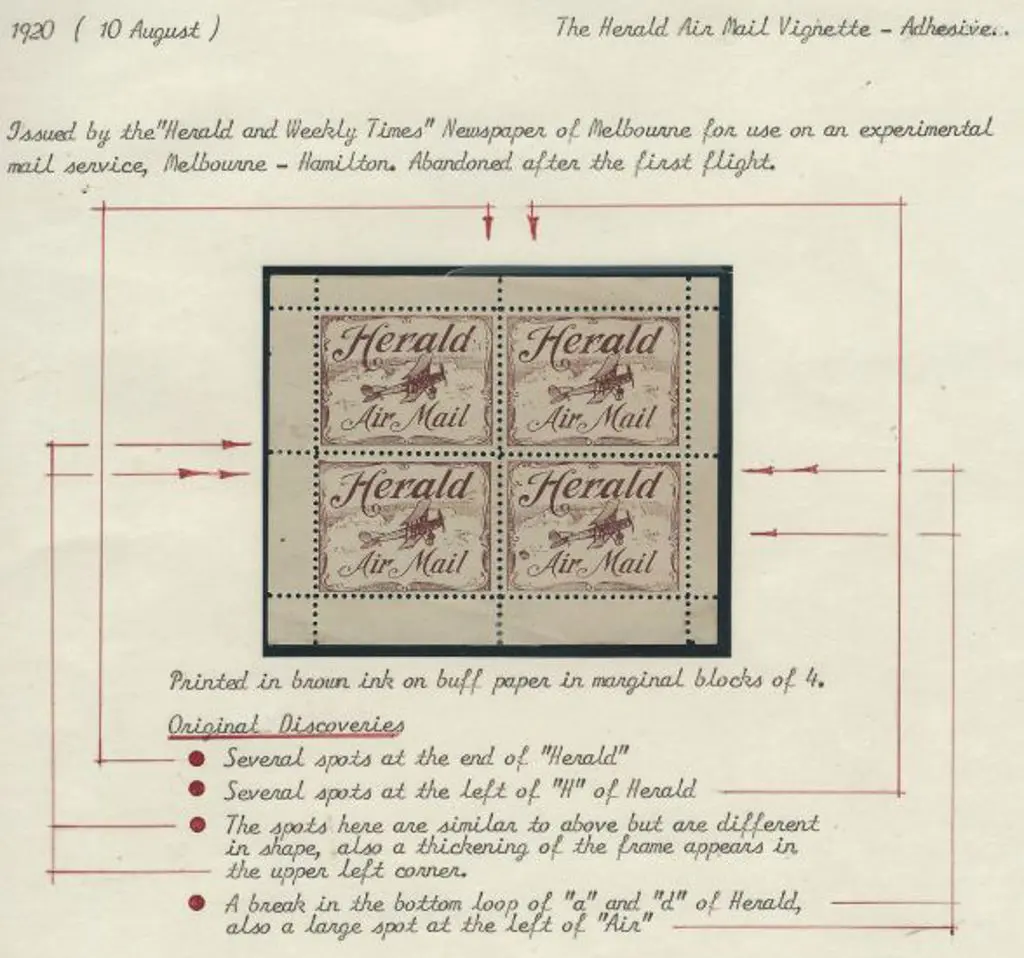 1920 ( 10 August )
The Herald Air Mail Vignette - Adhesive..
Issued by the "Herald and Weekly Times" Newspaper of Melbourne for use on an experimental
mail service, Melbourne - Hamilton. Abandoned after the first flight.
Herald
Air Mail
Herald
Air Mail
Herald
Air Mail
Herald
Air Mail
Printed in brown ink on buff paper in marginal blocks of 4.
Original Discoveries
Several spots at the end of "Herald"
Several spots at the left of "H" of Herald
The spots here are similar to above but are different
in shape, also a thickening of the frame appears in
the upper left corner.
A break in the bottom loop of "a" and "d" of Herald,
also a large spot at the left of "Air"